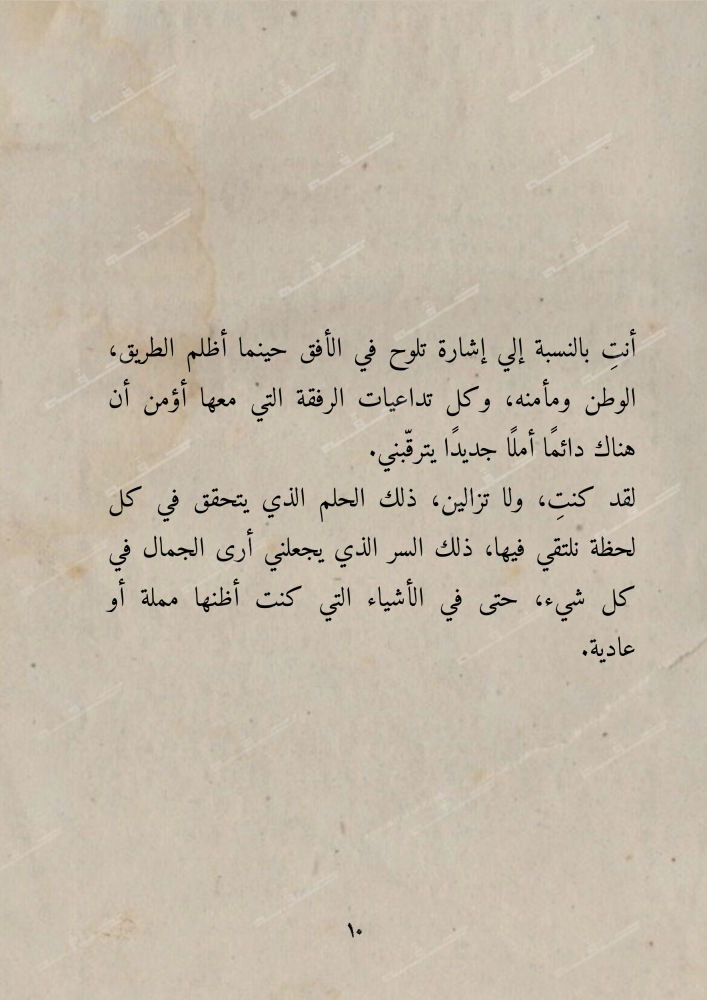 أنتِ بالنسبة إلي إشارة تلوح في الأفق حينما أظلم الطريق،
الوطن ومأمنه، وكل تداعيات الرفقة التي معها أؤمن أن
هناك دائمًا أملًا جديدًا يترقّبني.
لقد كنتِ، ولا تزالين، ذلك الحلم الذي يتحقق في كل
لحظة نلتقي فيها، ذلك السر الذي يجعلني أرى الجمال في
كل شيء، حتى في الأشياء التي كنت أظنها مملة أو
عادية.
١٠